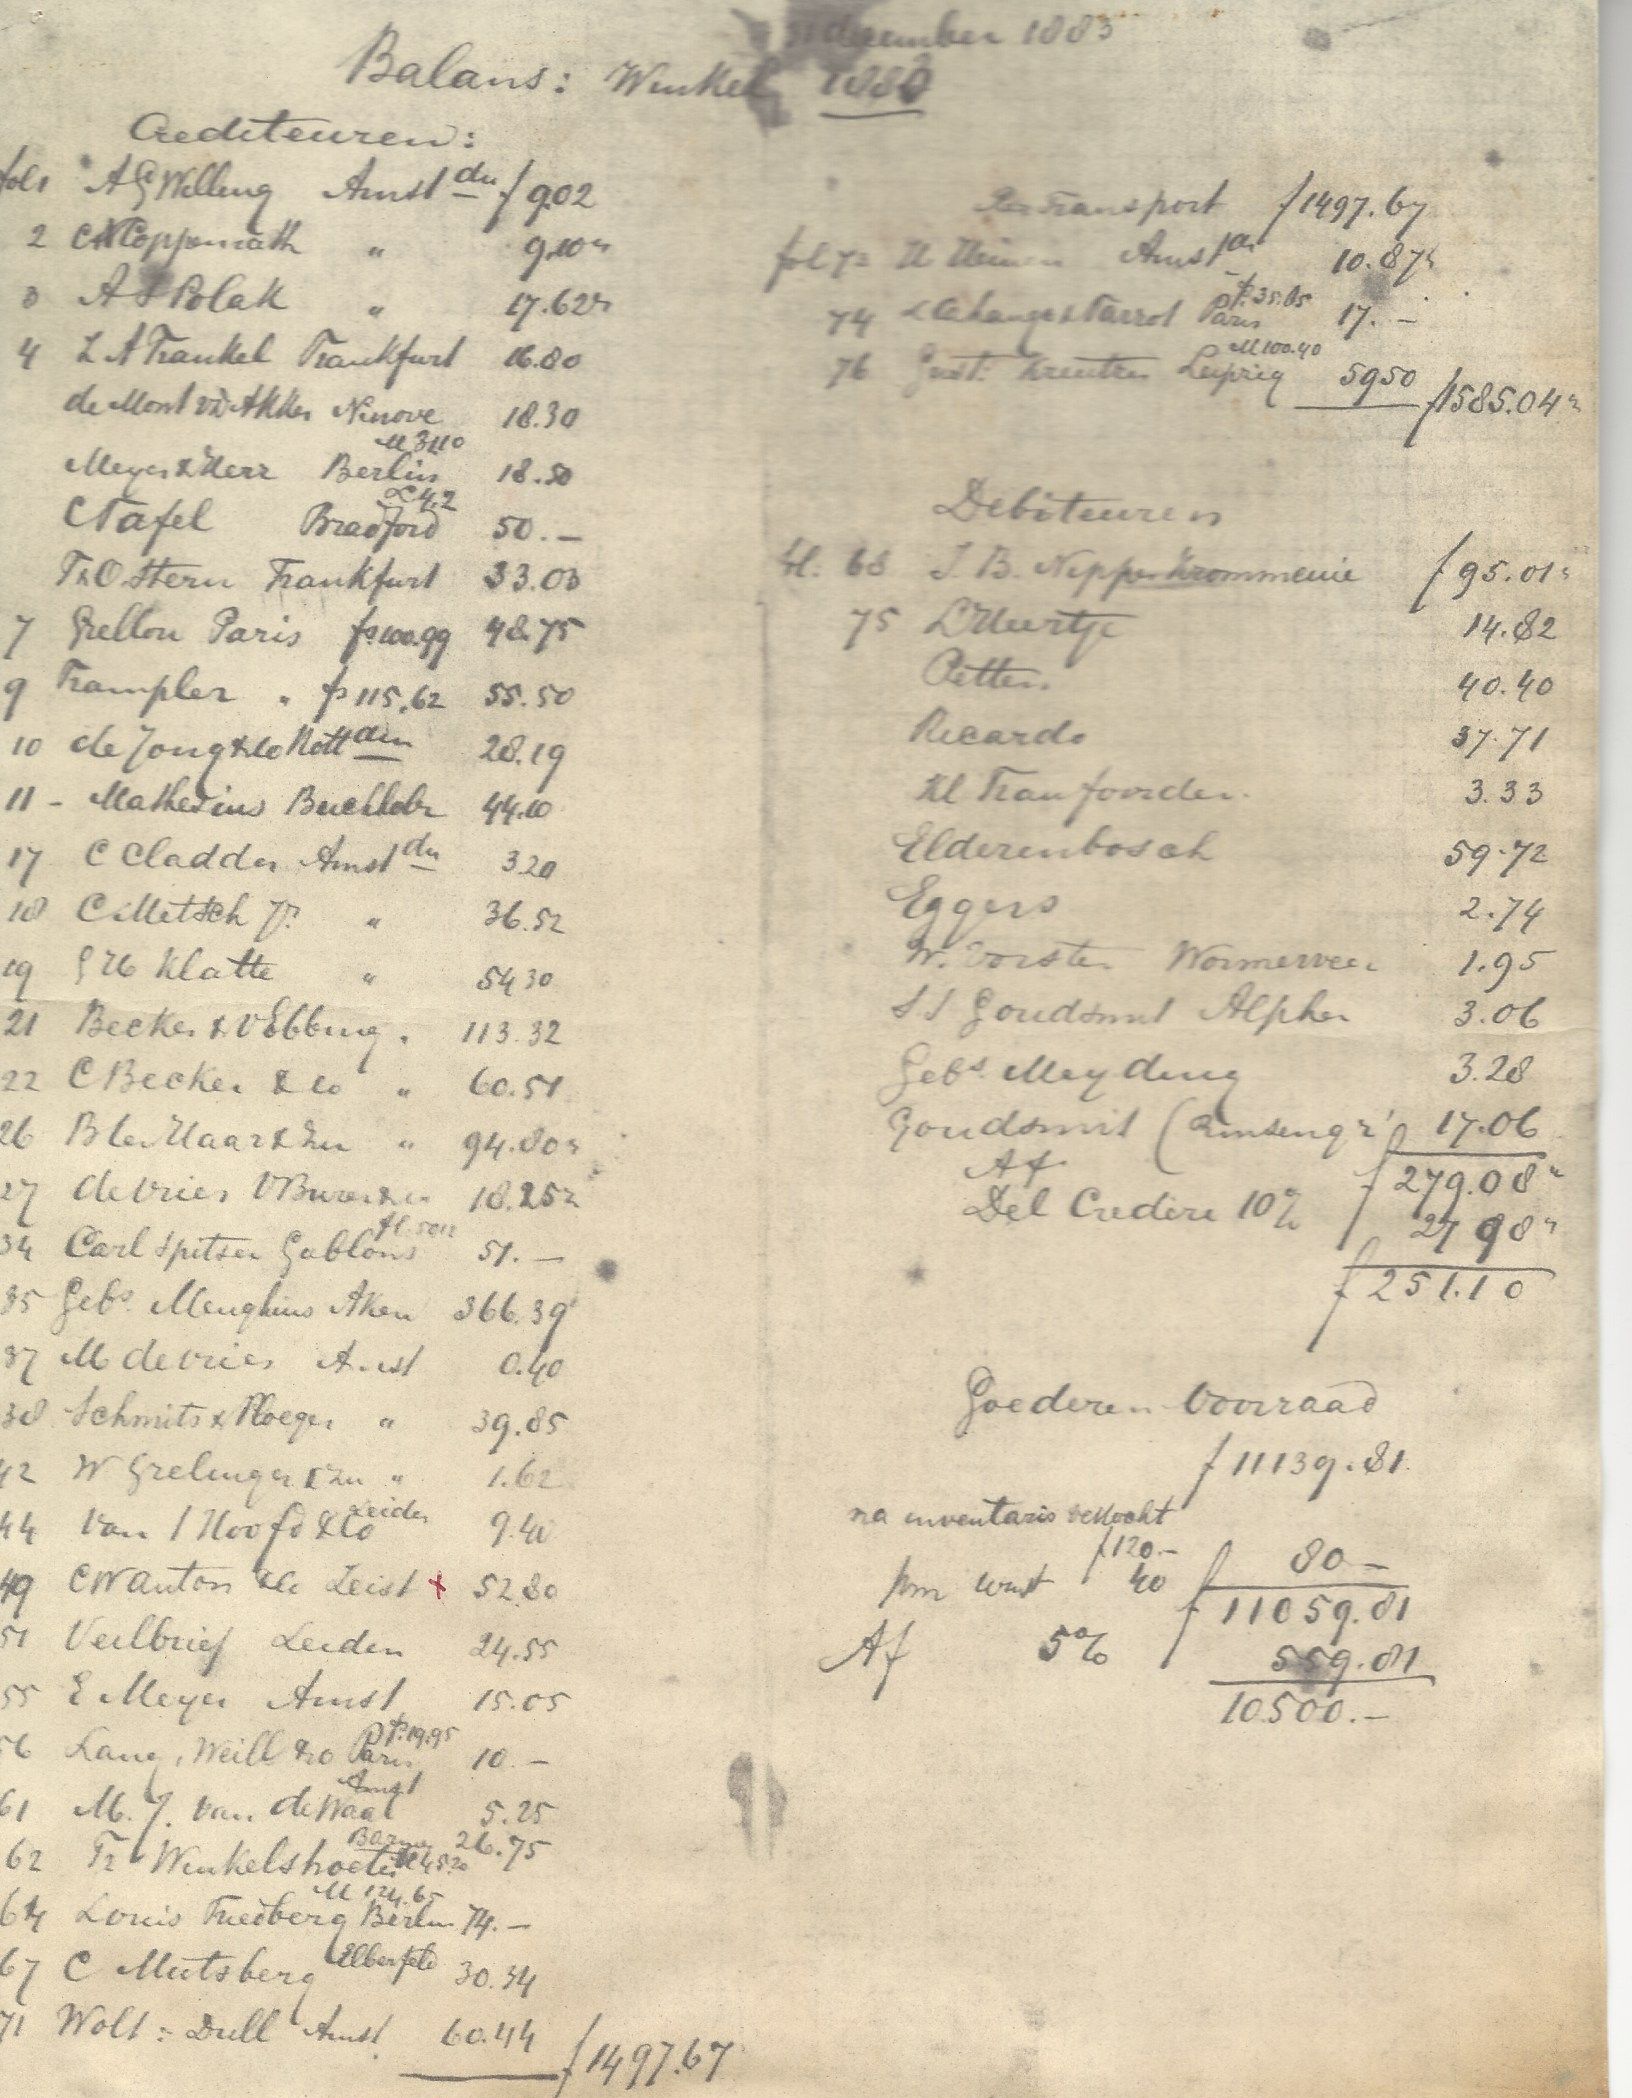 31 december 1883
Balans: Winkel 1883
Crediteuren:
fol 1 A G Welling Amstdm f 9.02
2 C N Coppenrath " 9.10⁵
3 A S Polak " 17.62⁵
4 L A Frankel Frankfurt 16.80
de Mont vd Akker Ninove 18.30
M 31.10
Meyer & Herr Berlin 18.50
£ 4.2
C Tafel Bradford 50.—
T & O Stern Frankfurt 33.03
7 Grellou Paris fr 100.99 48.75
9 Trampler " fr 115.62 55.50
10 de Jong & Co Rottdam 28.19
11 - Mathesius Buchholz 44.10
17 C Cladder Amstdm 3.20
18 C Metsch Jr. " 36.52
19 G H Klatte " 54.30
21 Becker & v Ebbing " 113.32
22 C Becker & Co " 60.51
26 B ter Haar & Zn " 94.80⁵
27 de Vries v Buren & Co 18.25⁵
34 Carl Spitzer Gablonz 51.—
35 Gebs. Menghius Aken 366.39
37 M de Vries Amst 0.40
38 Schmits & Ploeger " 39.85
42 W Grelinger & Zn " 1.62
44 van 't Hoofd & Co Leiden 9.40
49 C W Anton & Co Zeist + 52.80
51 Veilbrief Leiden 24.55
55 E Meyer Amst 15.05
fr. 19.95
56 Lang, Weill & Co Paris 10.—
61 M. J. van de Waal Amst 5.25
62 Fr Winkelshoete Barmen M 45.20 26.75
M 124.65
64 Louis Friedberg Berlin 74.—
67 C Mutsberg Elberfeld 30.34
71 Wolt: Dull Amst. 60.44 f 1497.67
Per Transport f 1497.67
fol 72 H Heinen Amstdm 10.87⁵
fr. 35.05
74 Parrot Paris 17.—
M 100.40
76 Gust: Kreutzer Leipzig 59.50 f 1585.04⁵
Debiteuren
fl. 68 J. B. Nipper Krommenie f 95.01⁵
75 L Heertje 14.82
Petten 40.40
Ricardo 37.71
Kl Franfoorder 3.33
Elderenbosch 59.72
Eggers 2.74
W. Vorster Wormerveer 1.95
S S Goudsmit Alphen 3.06
Gebs. Meyding 3.28
Goudsmit ( 17.06
Af f 279.08⁵
Del Credere 10% 27.98⁵
f 251.10
Goederen Voorraad
f 11139.81
na inventaris verkocht
f 120.—
pm winst 40 f 80.—
f 11059.81
Af 5% 559.81
10500.—